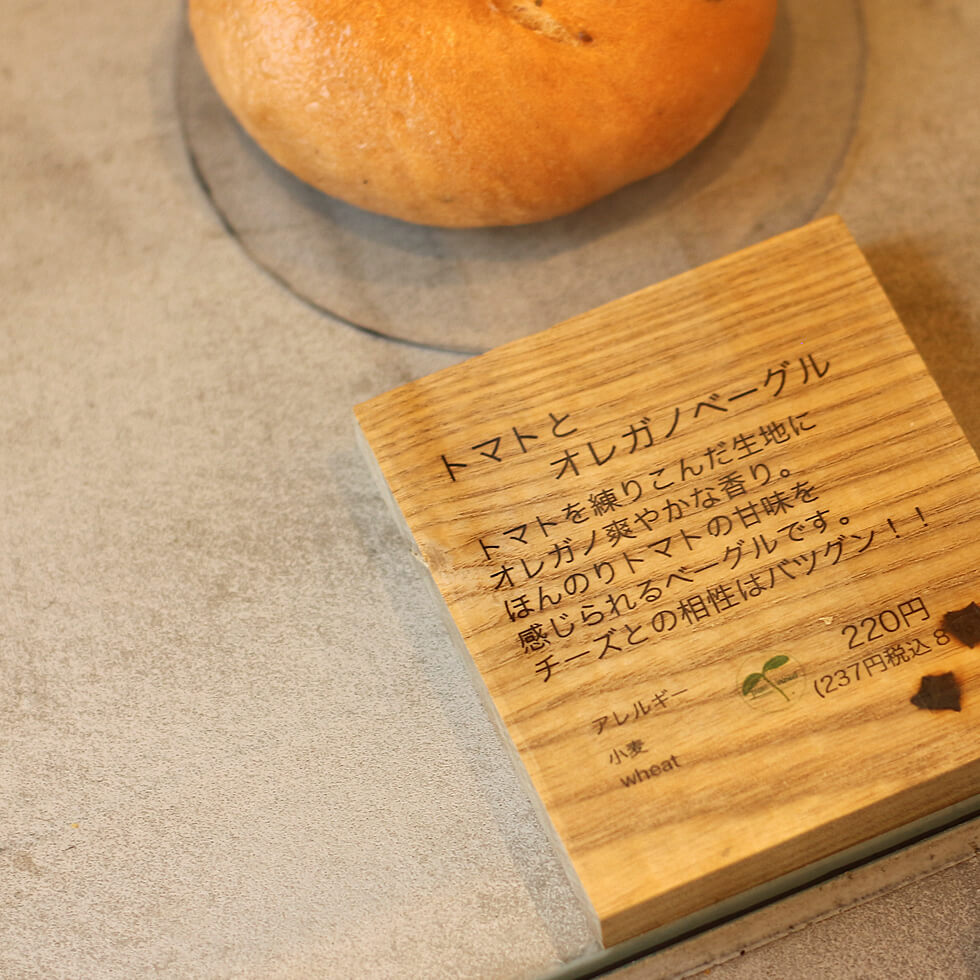 トマトと
オレガノベーグル
トマトを練りこんだ生地に
オレガノ爽やかな香り。
ほんのりトマトの甘味を
感じられるベーグルです。
チーズとの相性はバツグン！！
220円
(237円税込 8
アレルギー
小麦
wheat